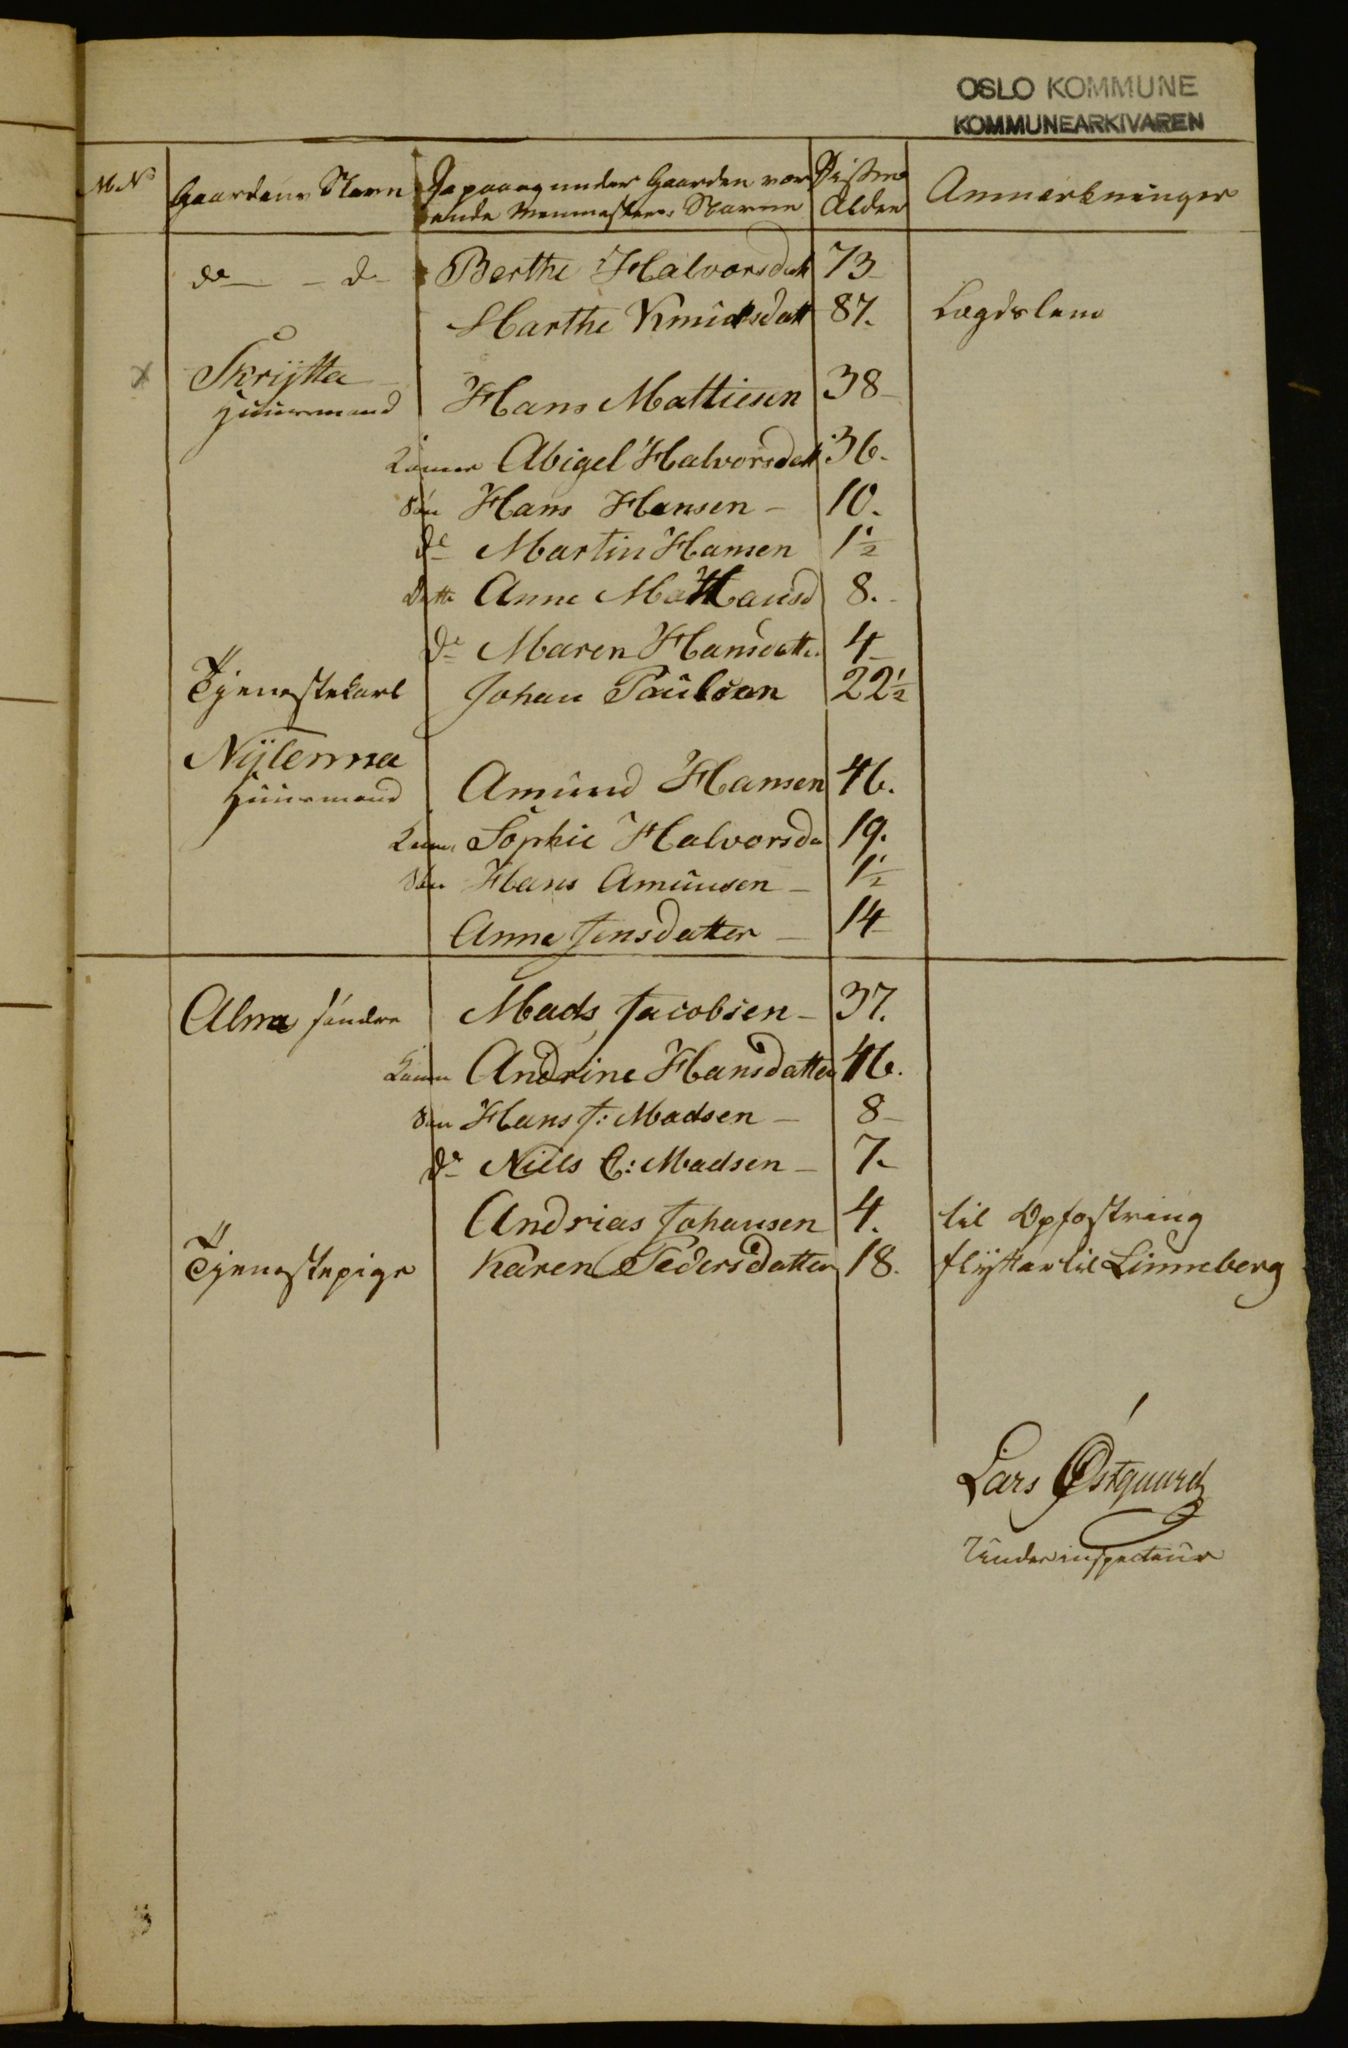 OSLO KOMMUNE
KOMMUNEARKIVAREN
M N Gaardens Navn Paa og under Gaarden vær Disses Anmærkninger
ende Menneskers Navne Alder
do - do Berthe Halvorsdatt 73
Marthe Knudsdatt 87. Lægdslem
Skrÿtta
Huusmand Hans Mattiesen 38
Konne Abigel Halvorsdatt 36.
Søn Hans Hansen 10.
do Martin Hansen 1½
Datte Anne Ma Hansd 8.
do Maren Hansdatter 4
Tjenestekarl Johan Paulsen 22½
Nÿlenna
Huusmand Amund Hansen 46.
Kone Sophie Halvorsda 19.
Søn Hans Amunsen 1½
Anne Jensdatter 14
Alna søndre Mads Jacobsen 37.
Konen Andrine Hansdatter 46.
Søn Hans J: Madsen 8
do Niels C: Madsen 7.
Andrias Johansen 4. til Opfostring
Tjenestepige Karen Pedersdatter 18. flÿtter til Linneberg
Lars Østgaard
Underinspecteur